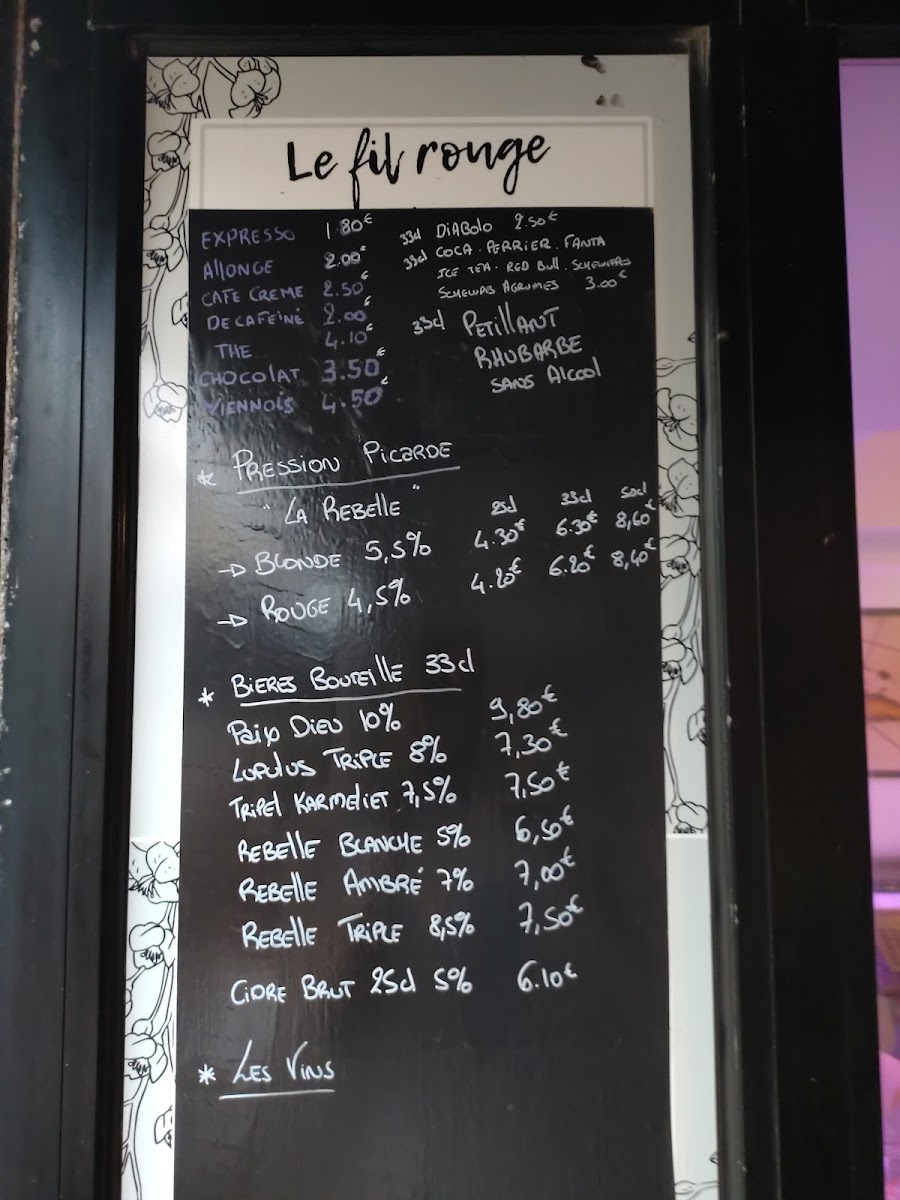 Le fil rouge
EXPRESSO 1.80€
Allonge 2.00€
CAFE CREME 2.50€
DECAFEINÉ 2.00€
THE 4.10€
CHOCOLAT 3.50€
VIENNOIS 4.50€
33cl DIABOLO 2.50€
33cl COCA. PERRIER. FANTA
ICE TEA. RED Bull. SCHEWEPPS
SCHEWEPS AGRUMES 3.00€
33cl PETILLANT
RHUBARBE
SANS Alcool
* PRESSION PICARDE
"LA REBELLE" 25cl 33cl 50cl
→ BLONDE 5,5% 4.30€ 6.30€ 8,60€
→ ROUGE 4,5% 4.20€ 6.20€ 8,40€
* BIERES BOUTEILLE 33cl
PAIX DIEU 10% 9,80€
LUPULUS TRIPLE 8% 7,30€
TRIPEL KARMELIET 7,5% 7,50€
REBELLE BLANCHE 5% 6,50€
REBELLE AMBRÉ 7% 7,00€
REBELLE TRIPLE 8,5% 7,50€
CIDRE BRUT 25cl 5% 6.10€
* LES VINS